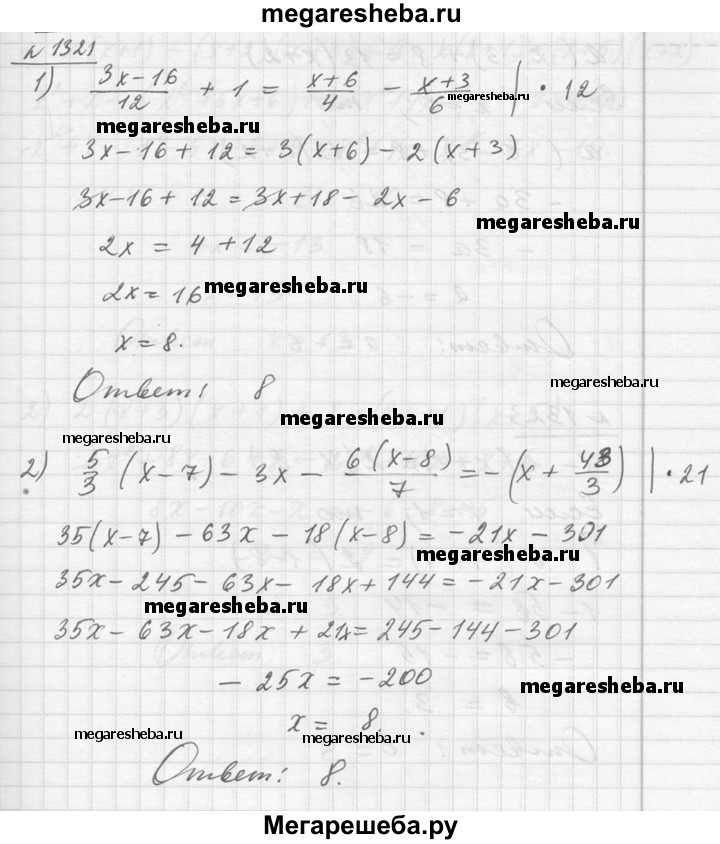 megaresheba.ru
№ 1321
1) \frac{3x-16}{12} + 1 = \frac{x+6}{4} - \frac{x+3}{6} | · 12
megaresheba.ru
megaresheba.ru
3x-16+12=3(x+6)-2(x+3)
3x-16+12=3x+18-2x-6
megaresheba.ru
2x = 4+12
2x=16
megaresheba.ru
x=8.
Ответ: 8
megaresheba.ru
megaresheba.ru
megaresheba.ru
2) \frac{5}{3}(x-7)-3x-\frac{6(x-8)}{7}=-(x+\frac{43}{3}) | · 21
35(x-7)-63x-18(x-8)=-21x-301
megaresheba.ru
35x-245-63x-18x+144=-21x-301
megaresheba.ru
35x-63x-18x+21x=245-144-301
-25x=-200
megaresheba.ru
x= 8.
megaresheba.ru
megaresheba.ru
megaresheba.ru
Ответ: 8.
Мегарешеба.ру